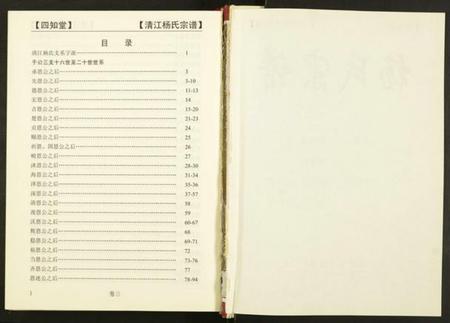 【四知堂】 【清江杨氏宗谱】
目 录
清江杨氏支系字派 1
千公三支十六世至二十世世系
承恩公之后 3
先恩公之后 3-10
德恩公之后 11-13
宏恩公之后 14
吉恩公之后 15-20
楚恩公之后 21-23
贞恩公之后 24
锡恩公之后 25
国恩公之后 26
晚恩公之后 27
泮恩公之后 28-30
海恩公之后 31-34
泽恩公之后 35-36
深恩公之后 37-57
清恩公之后 58
茂恩公之后 59
沃恩公之后 60-67
恩公之后 68
恩公之后 69-71
裕恩公之后 72
当恩公之后 73-76
齐恩公之后 77
恩述公之后 78-94
1 卷三
杨氏宗谱